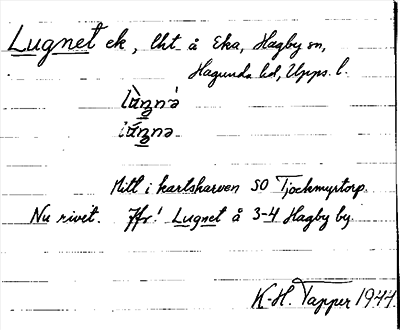 Lugnet ek, lht å Eka, Hagby sn,
Hagunda hd, Upps. l.
Mitt i kartskarven SO Tjockmyrtorp.
Nu rivet. Jfr! Lugnet å 3-4 Hagby by.
K-H. Tapper 1944.